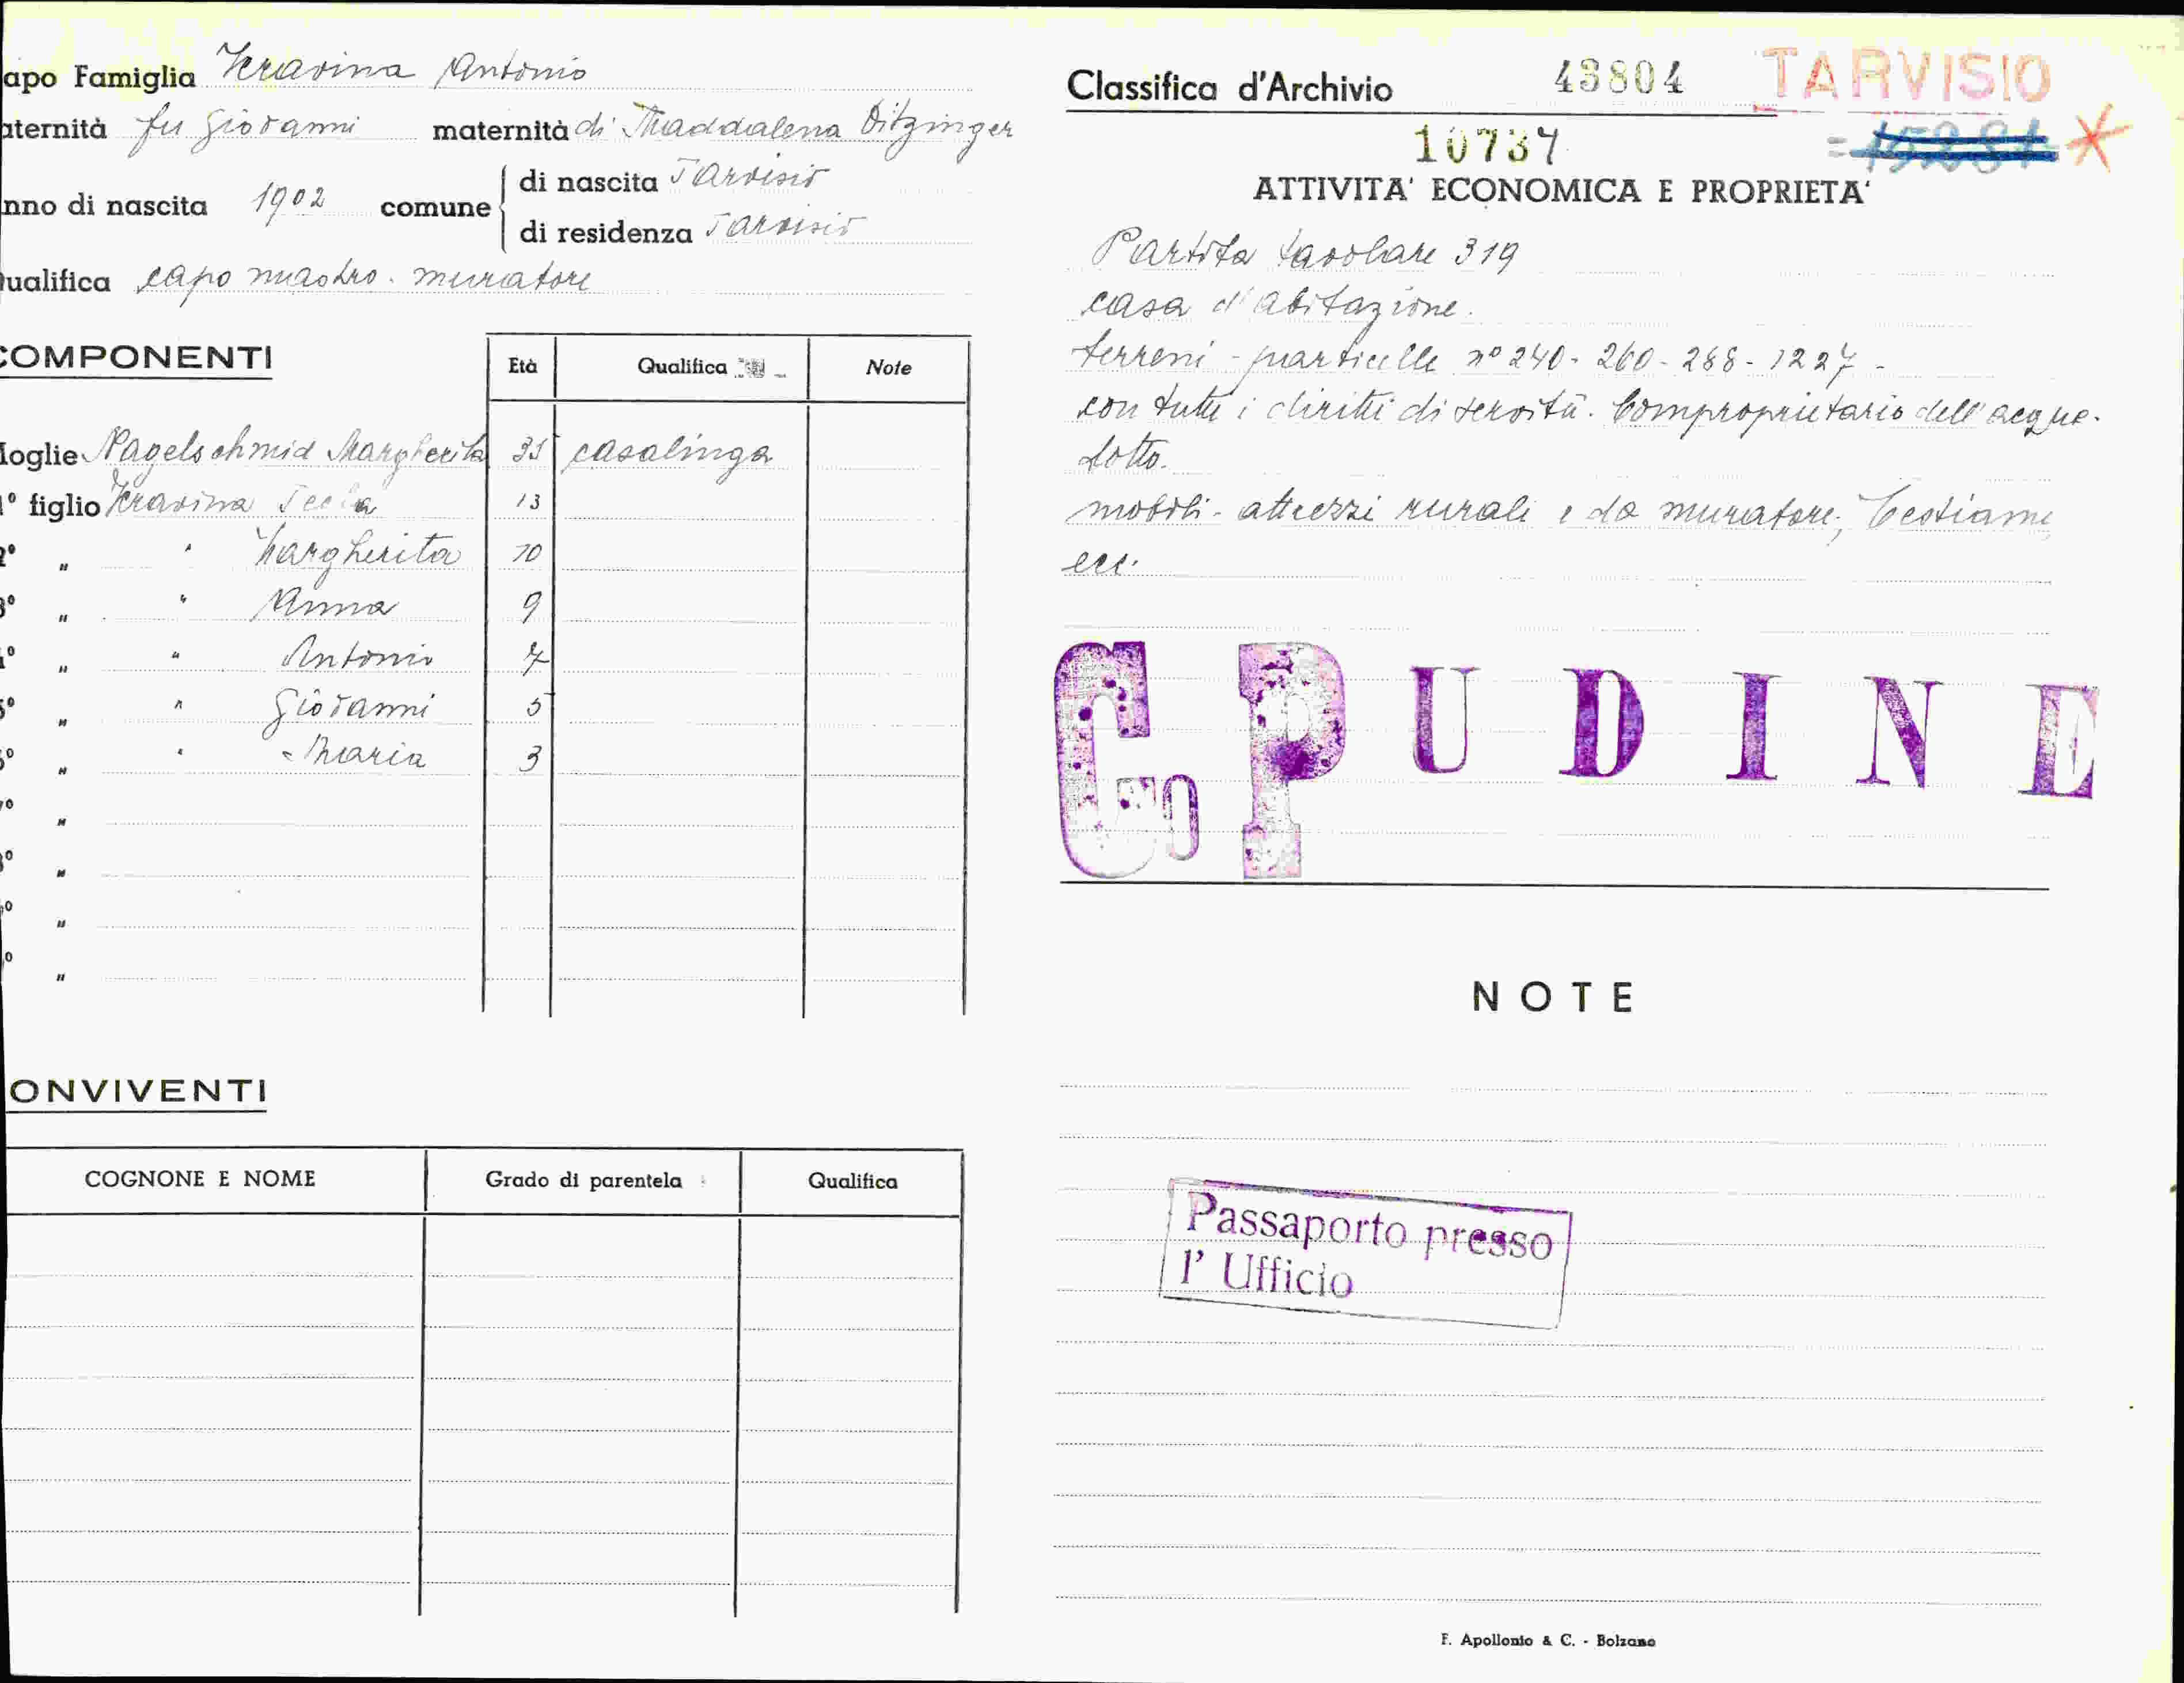 apo Famiglia Kravina Antonio
aternità fu Giovanni maternità di Maddalena Ditzinger
nno di nascita 1902 comune di nascita Tarvisio
di residenza Tarvisio
ualifica capo mastro - muratore
COMPONENTI Età Qualifica Note
oglie Nagelschmid Margherita 35 casalinga
1° figlio Kravina Tecla 13
2° " " Margherita 10
3° " " Anna 9
4° " " Antonio 7
5° " " Giovanni 5
6° " " Maria 3
7° "
8° "
9° "
° "
ONVIVENTI
COGNONE E NOME Grado di parentela Qualifica
Classifica d'Archivio 43804 TARVISIO
10737
ATTIVITA' ECONOMICA E PROPRIETA'
Partita tavolare 319
casa d'abitazione.
terreni - particelle n° 240 - 260 - 288 - 1227 -
con tutti i diritti di servitù. Comproprietario dell'acque-
dotto.
mobili - attrezzi rurali e da muratore; bestiame,
ecc.
C P U D I N E
NOTE
Passaporto presso
l' Ufficio
F. Apollonio & C. - Bolzano